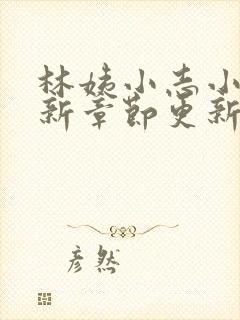 林姨小志小
新章节更新
彦然